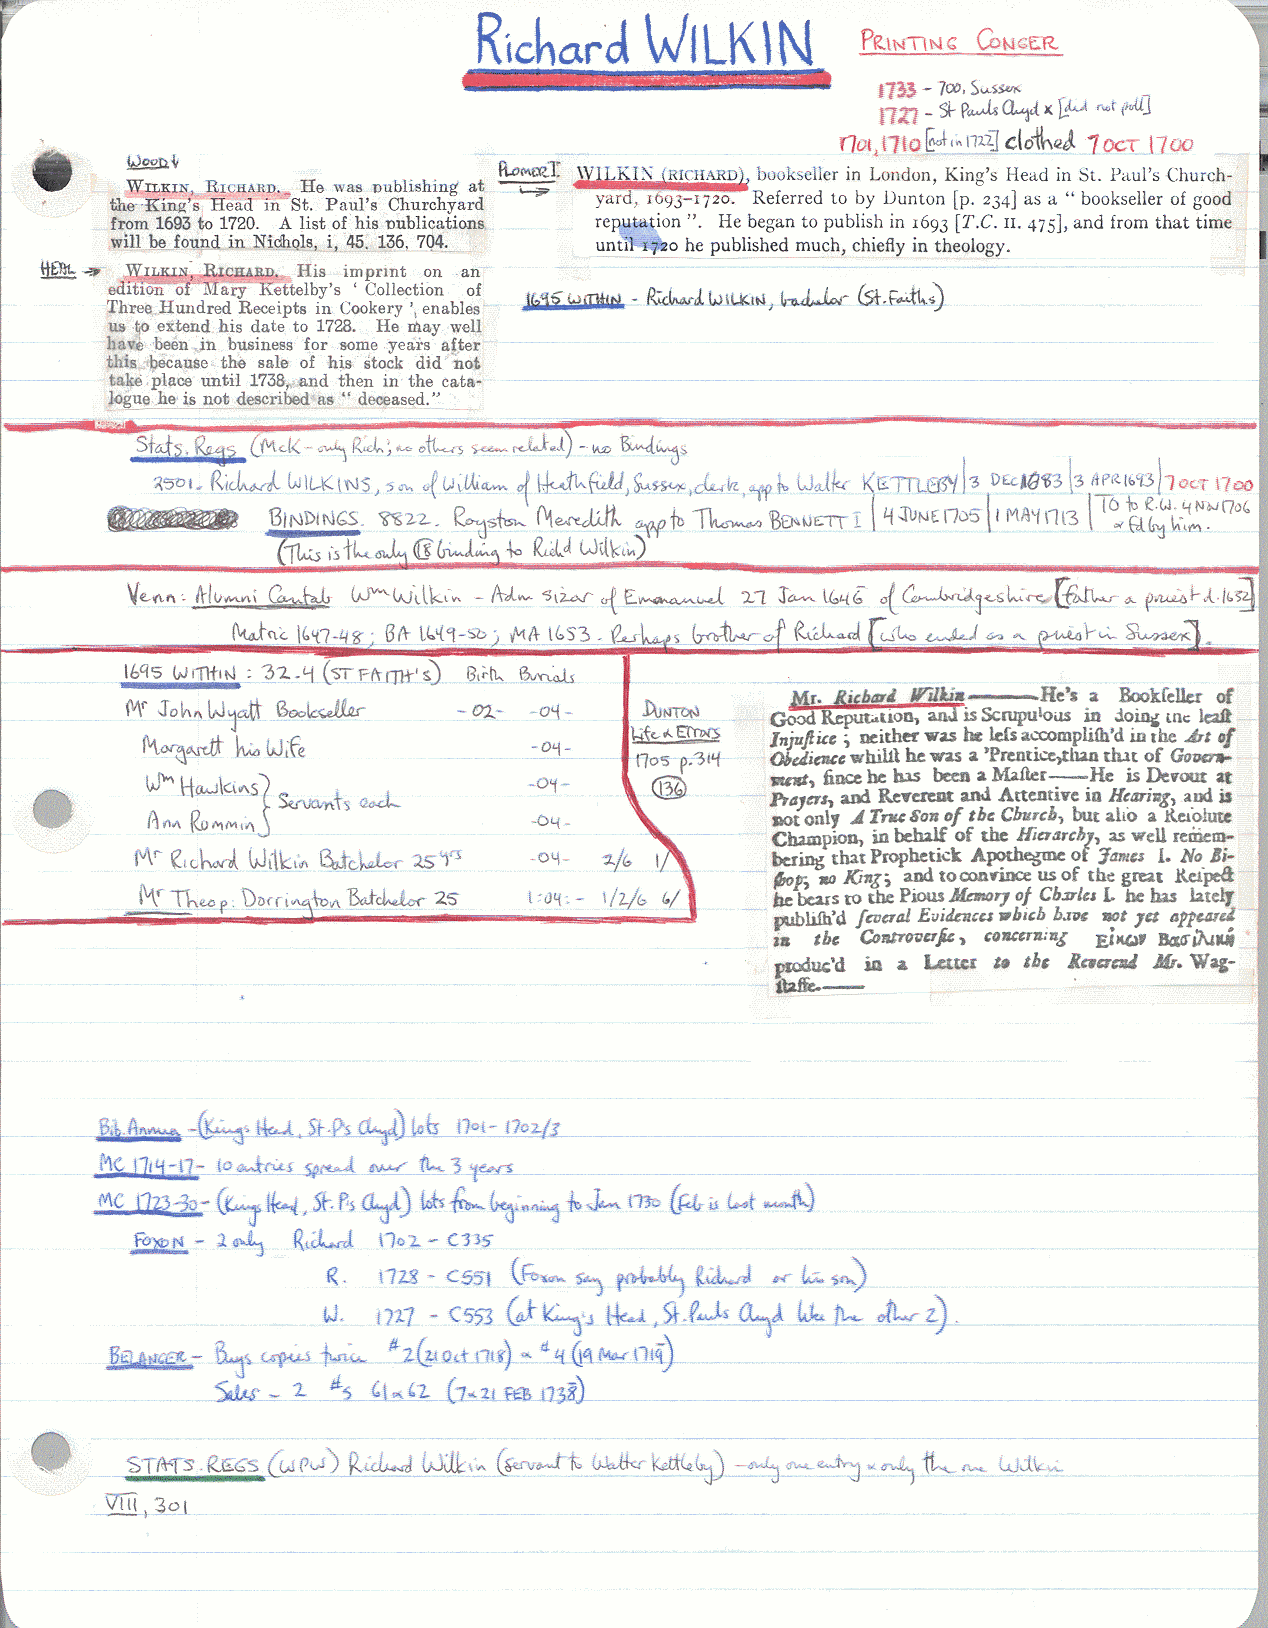 Richard WILKIN
PRINTING CONGER
1733 - 700, Sussex
1727 - St Pauls Chyd x [did not poll]
1701, 1710 [not in 1722] clothed 7 OCT 1700
WOOD ↓
WILKIN, RICHARD. He was publishing at
the King's Head in St. Paul's Churchyard
from 1693 to 1720. A list of his publications
will be found in Nichols, i, 45, 136, 704.
PLOMER I
WILKIN (RICHARD), bookseller in London, King's Head in St. Paul's Church-
yard, 1693–1720. Referred to by Dunton [p. 234] as a “ bookseller of good
reputation ”. He began to publish in 1693 [T.C. II. 475], and from that time
until 1720 he published much, chiefly in theology.
WILKIN, RICHARD. His imprint on an
edition of Mary Kettelby's ‘ Collection of
Three Hundred Receipts in Cookery ’, enables
us to extend his date to 1728. He may well
have been in business for some years after
this because the sale of his stock did not
take place until 1738, and then in the cata-
logue he is not described as “ deceased.”
1695 WITHIN - Richard WILKIN, bachelor (St. Faiths)
Stats. Regs (McK - only Rich; no others seem related) - no Bindings
2501. Richard WILKINS, son of William of Heathfield, Sussex, clerk, app to Walter KETTLEBY | 3 DEC 1683 | 3 APR 1693 | 7 OCT 1700
BINDINGS. 8822. Royston Meredith app to Thomas BENNETT I | 4 JUNE 1705 | 1 MAY 1713 | TO to R.W. 4 Nov 1706
& fd by him.
(This is the only binding to Rich'd Wilkin)
Venn: Alumni Cantab Wm Wilkin - Adm sizar of Emmanuel 27 Jan 1646 of Cambridgeshire [father a priest d. 1652]
Matric 1647-48; BA 1649-50; MA 1653. Perhaps brother of Richard [who ended as a priest in Sussex].
1695 WITHIN : 32.4 (ST FAITH'S) Birth Burials
Mr John Wyatt Bookseller - 02 - - 04 -
Margarett his Wife - 04 -
Wm Hawkins } Servants each - 04 -
Ann Rommin - 04 -
Mr Richard Wilkin Batchelor 25 yrs - 04 - 2/6 1/
Mr Theop: Dorrington Batchelor 25 1:04:- 1/2/6 6/
DUNTON
Life & Errors
1705 p.314
136
Mr. Richard Wilkin——He's a Bookſeller of
Good Reputation, and is Scrupulous in doing the leaſt
Injuſtice; neither was he leſs accompliſh'd in the Art of
Obedience whilſt he was a 'Prentice, than that of Govern-
ment, ſince he has been a Maſter——He is Devout at
Prayers, and Reverent and Attentive in Hearing, and is
not only A True Son of the Church, but alſo a Reſolute
Champion, in behalf of the Hierarchy, as well remem-
bering that Prophetick Apothegme of James I. No Bi-
ſhop, no King; and to convince us of the great Reſpect
he bears to the Pious Memory of Charles I. he has lately
publiſh'd ſeveral Evidences which have not yet appeared
in the Controverſie, concerning Εἰκων Βασιλικὴ
produc'd in a Letter to the Reverend Mr. Wag-
ſtaffe.——
Bib. Annua - (Kings Head, St. P's Chyd) lots 1701 - 1702/3
MC 1714-17 - 10 entries spread over the 3 years
MC 1723-30 - (Kings Head, St. P's Chyd) lots from beginning to Jan 1730 (Feb is last month)
FOXON - 2 only Richard 1702 - C335
R. 1728 - C551 (Foxon say probably Richard or his son)
W. 1727 - C553 (at King's Head, St. Pauls Chyd like the other 2).
BELANGER - Buys copies twice #2 (21 Oct 1718) & #4 (19 Mar 1719)
Sales - 2 #s 61 & 62 (7 & 21 FEB 1738)
STATS. REGS (WPW) Richard Wilkin (servant to Walter Kettleby) - only one entry & only the one Wilkin
VIII, 301